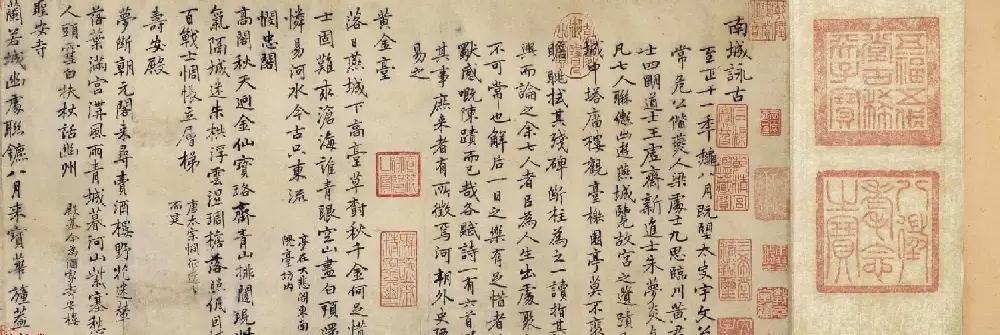 南城詠古
至正十一年秋八月既望太史宇文公
常危公偕燕人梁處士九思臨川黃君
士四明道士王虛齋新進士朱夢炎
凡七人聯轡出遊燕城覽故宮之遺蹟
城中塔廟樓觀臺榭園亭莫不裵
瞻眺拭其殘碑斷柱為之一讀指其
興而論之余七人者以為人生出處聚
不可常也解后一日之樂有足惜者
獸感慨陳蹟而已哉各賦詩一有六首
其事庶來者有所徵焉河朔外史
易之
黃金臺
落日燕城下高臺草樹秋千金何足惜
士固難求滄海誰青眼空山盡白頭還
憐易河水今古只東流
亭在大悲閣東南
隗臺坊內
憫忠閣
高閣秋天迥金仙寶珞齊青山排闥
氣隔城迷朱拱浮雲濕琱檐落照低因
百戰士惆悵立層梯
壽安殿
夢斷朝元閣來尋賣酒樓野花迷輦
落葉滿宮溝風雨青城暮河山紫塞愁
人頭雪白扶杖話幽州
殿基今為酒家壽安樓
聖安寺
蘭若城幽處聯鑣八月來寶華旛蓋
五福五代堂古稀天子寶
八徵耄念之寶